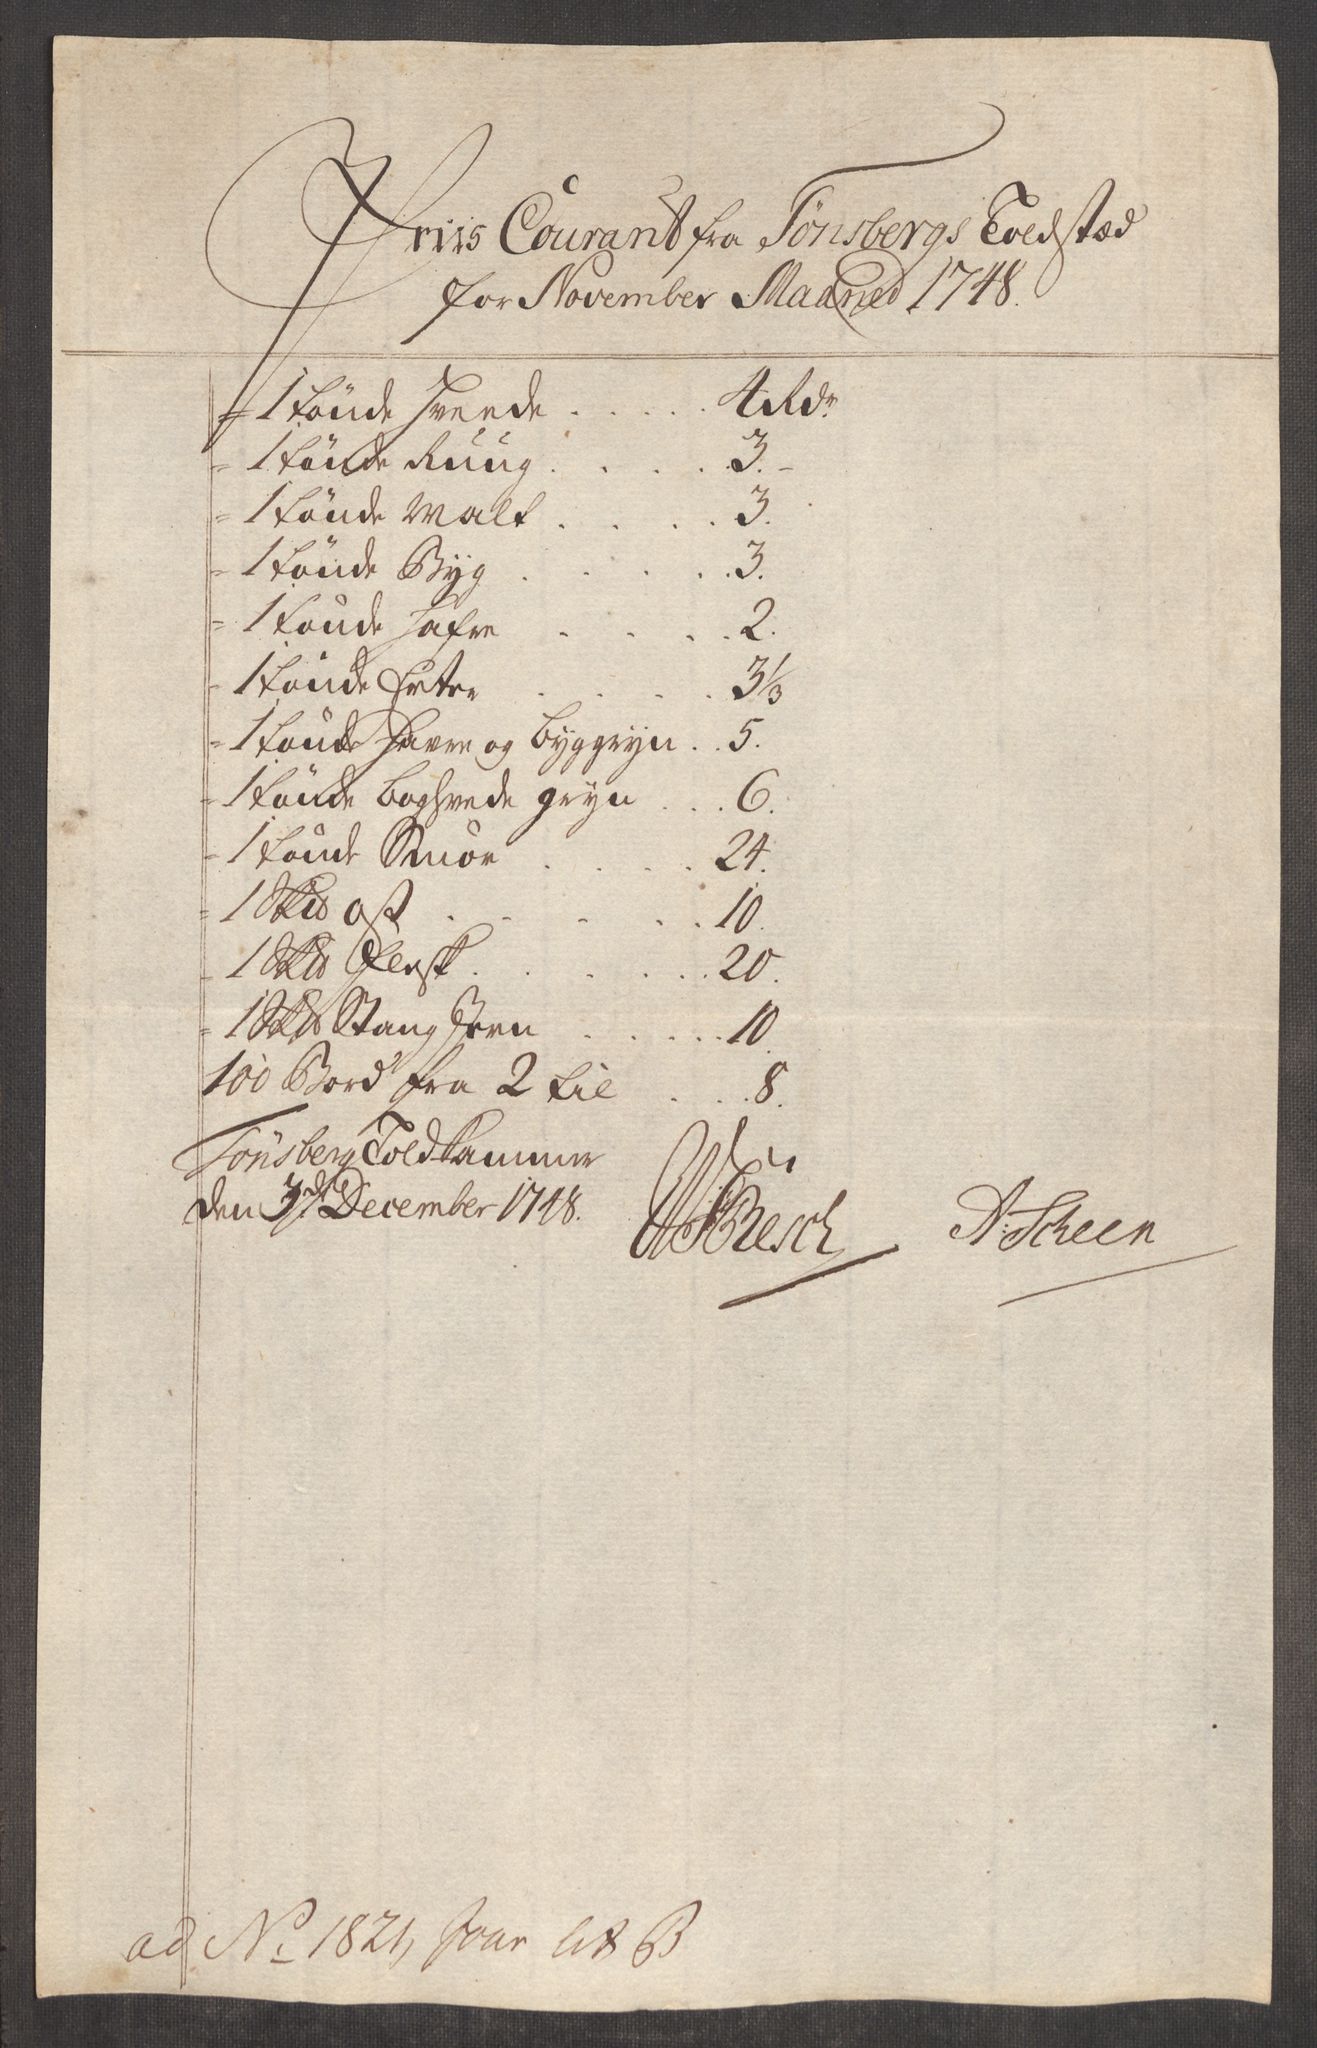 Priis Courant fra Tönsbergs Toldstæd
for November Maaned 1748.
= 1 tönde Hvede . . . . . 4 Rdr
= 1 tönde Ruug . . . . . 3. -
= 1 tönde Malt . . . . 3.
= 1 tönde Byg . . . . . 3.
= 1 tönde Hafre . . . . 2.
- 1 tönde Erter . . . . 3 1/3
= 1 tönde Havre og byggryn . . 5.
- 1 tönde boghvede gryn . . . 6.
- 1 tönde Smör . . . . 24.
= 1 Sk℔ ost . . . . . 10.
- 1 Sk℔ Flesk . . . . . 20.
= 1 Sk℔ Stang Jern . . . . . 10.
100 Bord fra 2 til . . . 8.
Tönsberg Toldkammer
den 3de December 1748.
Resch A: Scheen
ad No 1821, Lit B